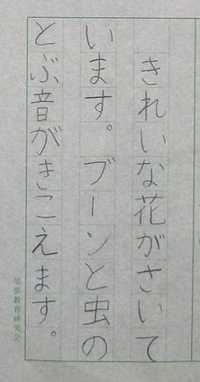 きれいな花がさいて
います。ブーンと虫の
とぶ音がきこえます。